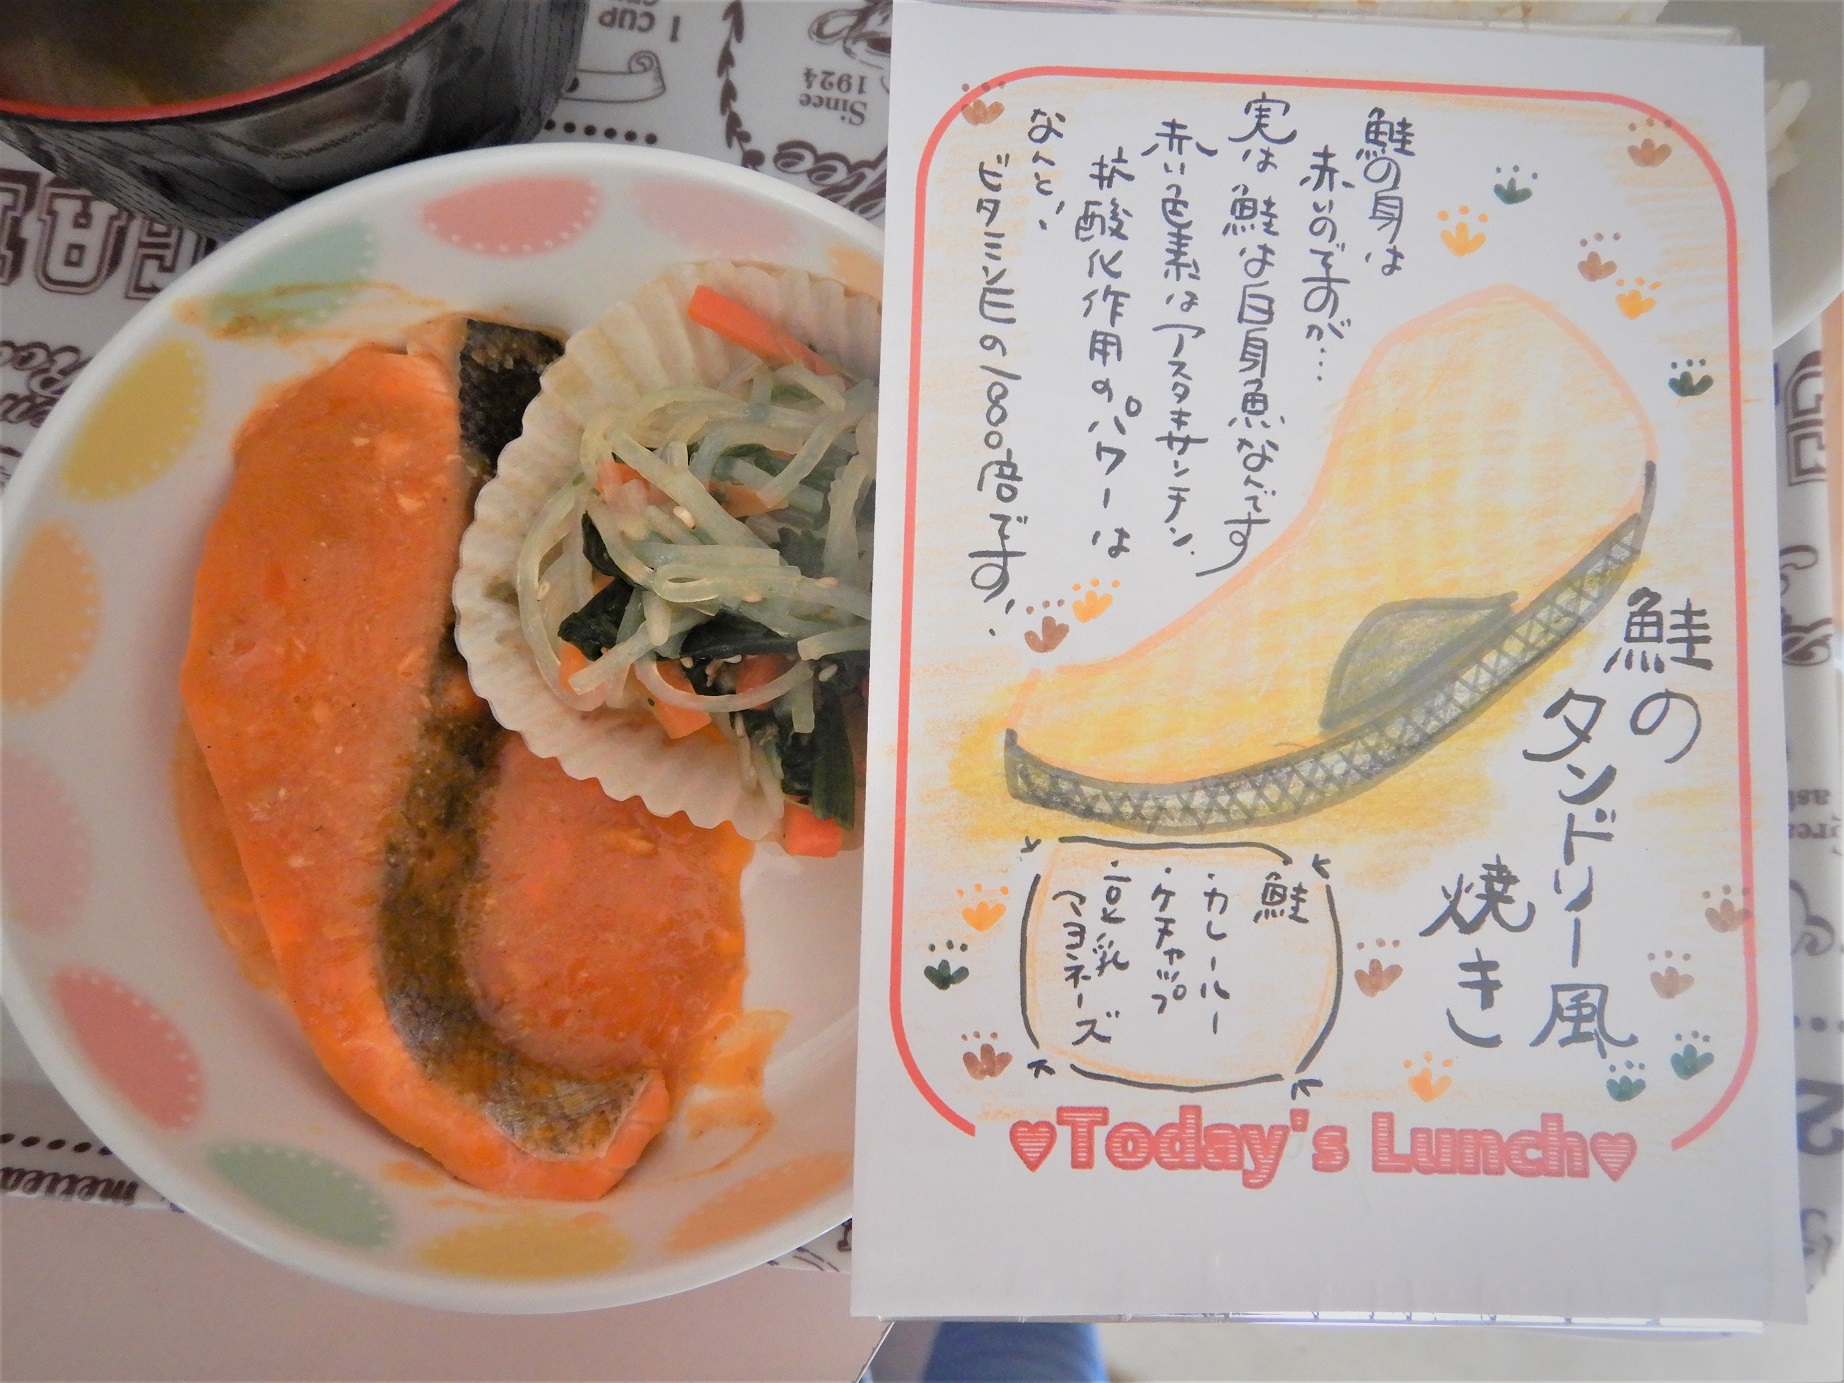 鮭の身は
赤いのですが…
実は鮭は白身魚なんです
赤い色素はアスタキサンチン、
抗酸化作用のパワーは
なんと、
ビタミンEの1000倍です、
鮭の
タンドリー風
焼き
鮭
・カレールー
・ケチャップ
・豆乳
マヨネーズ
♥Today's Lunch♥
1 CUP
Since
1924